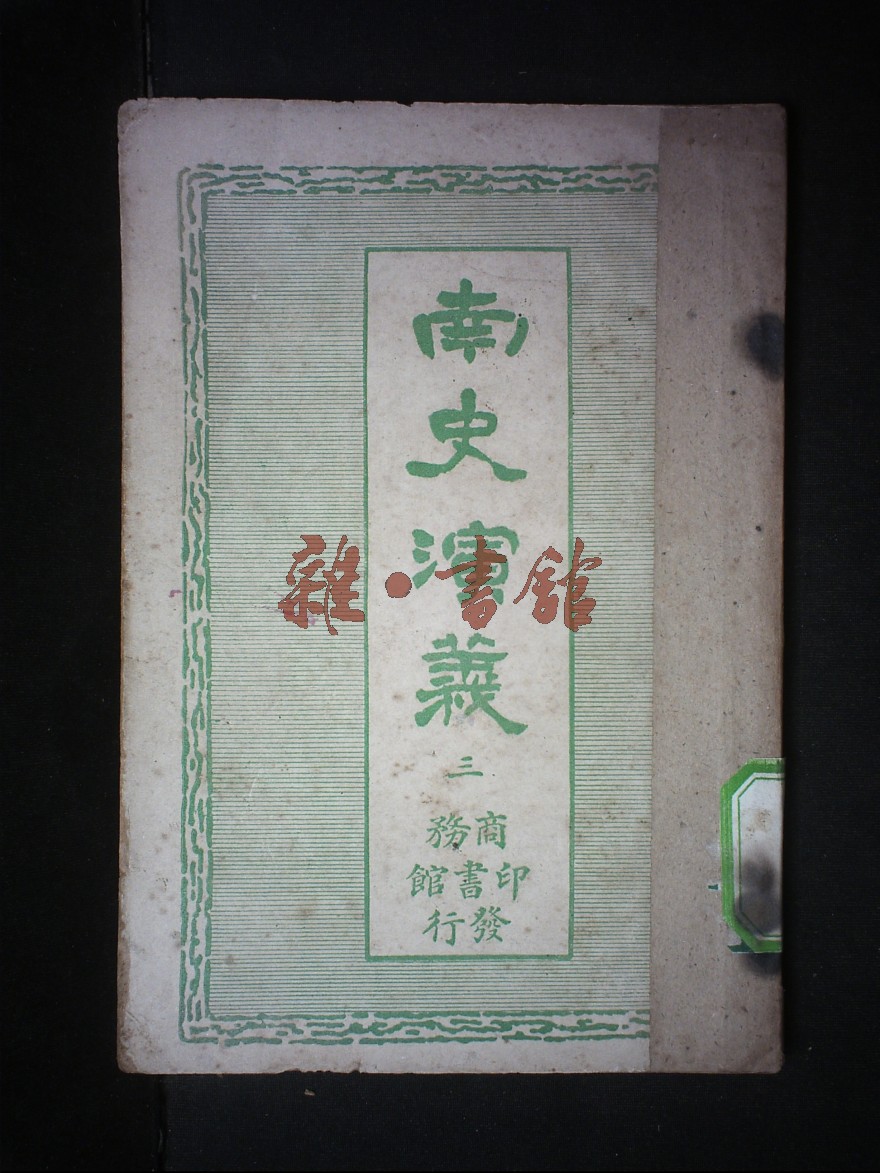 南史演義
三
商務
印書館
發行
雜·書館